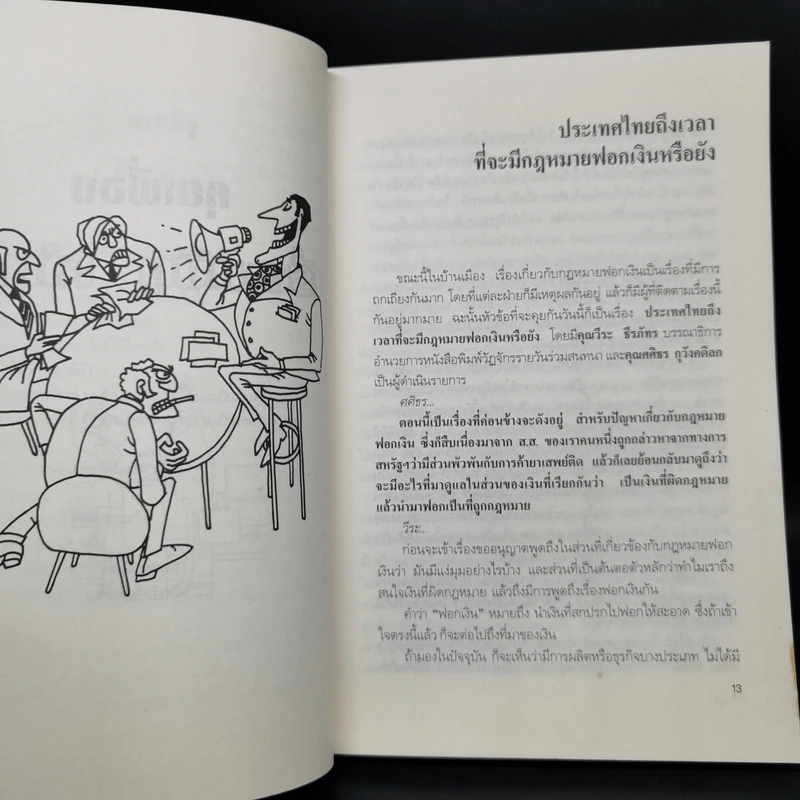 ประเทศไทยถึงเวลา
ที่จะมีกฎหมายฟอกเงินหรือยัง
ขณะนี้ในบ้านเมือง เรื่องเกี่ยวกับกฎหมายฟอกเงินเป็นเรื่องที่มีการ
ถกเถียงกันมาก โดยที่แต่ละฝ่ายก็มีเหตุผลกันอยู่ แล้วก็มีผู้ที่ติดตามเรื่องนี้
กันอยู่มากมาย ฉะนั้นหัวข้อที่จะคุยกันวันนี้ก็เป็นเรื่อง ประเทศไทยถึง
เวลาที่จะมีกฎหมายฟอกเงินหรือยัง โดยมีคุณวีระ ธีรภัทร บรรณาธิการ
อำนวยการหนังสือพิมพ์วัฏจักรรายวันร่วมสนทนา และคุณศศิธร ภูวังคดิลก
เป็นผู้ดำเนินรายการ
ศศิธร...
ตอนนี้เป็นเรื่องที่ค่อนข้างจะดังอยู่ สำหรับปัญหาเกี่ยวกับกฎหมาย
ฟอกเงิน ซึ่งก็สืบเนื่องมาจาก ส.ส. ของเราคนหนึ่งถูกกล่าวหาจากทางการ
สหรัฐฯว่ามีส่วนพัวพันกับการค้ายาเสพย์ติด แล้วก็เลยย้อนกลับมาดูถึงว่า
จะมีอะไรที่มาดูแลในส่วนของเงินที่เรียกกันว่า เป็นเงินที่ผิดกฎหมาย
แล้วนำมาฟอกเป็นที่ถูกกฎหมาย
วีระ...
ก่อนจะเข้าเรื่องขออนุญาตพูดถึงในส่วนที่เกี่ยวข้องกับกฎหมายฟอก
เงินว่า มันมีแง่มุมอย่างไรบ้าง และส่วนที่เป็นต้นตอตัวหลักว่าทำไมเราถึง
สนใจเงินที่ผิดกฎหมาย แล้วถึงมีการพูดถึงเรื่องฟอกเงินกัน
คำว่า "ฟอกเงิน" หมายถึง นำเงินที่สกปรกไปฟอกให้สะอาด ซึ่งถ้าเข้า
ใจตรงนี้แล้ว ก็จะต่อไปถึงที่มาของเงิน
ถ้ามองในปัจจุบัน ก็จะเห็นว่ามีการผลิตหรือธุรกิจบางประเภท ไม่ได้มี
13